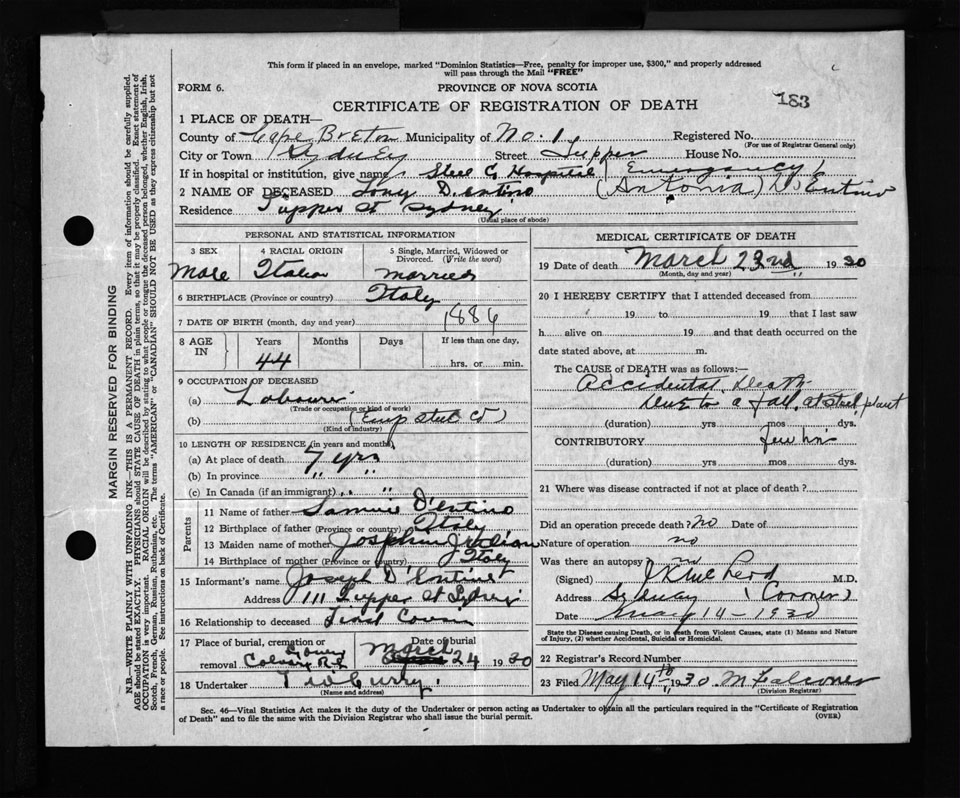 This form if placed in an envelope, marked "Dominion Statistics—Free, penalty for improper use, $300," and properly addressed
will pass through the Mail "FREE"
FORM 6.
PROVINCE OF NOVA SCOTIA
183
CERTIFICATE OF REGISTRATION OF DEATH
1 PLACE OF DEATH—
County of Cape Breton Municipality of No. 1 Registered No.
(For use of Registrar General only)
City or Town Sydney Street Tupper House No.
If in hospital or institution, give name Steel Co Hospital (Emergency)
2 NAME OF DECEASED Tony D'entino (Antonia) D'Entino
Residence Tupper St Sydney
(Usual place of abode)
PERSONAL AND STATISTICAL INFORMATION
3 SEX Male
4 RACIAL ORIGIN Italian
5 Single, Married, Widowed or Divorced. (Write the word) Married
6 BIRTHPLACE (Province or country) Italy
7 DATE OF BIRTH (month, day and year) 1886
8 AGE IN Years Months Days If less than one day,
44 hrs. or min.
9 OCCUPATION OF DECEASED
(a) Labourer
(Trade or occupation or kind of work)
(b) (Emp Steel Co)
(Kind of industry)
10 LENGTH OF RESIDENCE (in years and months)
(a) At place of death 7 yrs
(b) In province " "
(c) In Canada (if an immigrant) " "
Parents
11 Name of father D'entino
12 Birthplace of father (Province or country) Italy
13 Maiden name of mother Josephine
14 Birthplace of mother (Province or country) Italy
15 Informant's name Joseph D'Entino
Address 111 Tupper St Sydney
16 Relationship to deceased Cousin
17 Place of burial, cremation or removal Calvary R.C. Date of burial March 24 1930
18 Undertaker
(Name and address)
MEDICAL CERTIFICATE OF DEATH
19 Date of death March 23nd 1930
(Month, day and year)
20 I HEREBY CERTIFY that I attended deceased from
19 to 19 that I last saw
h alive on 19 and that death occurred on the
date stated above, at m.
The CAUSE of DEATH was as follows:—
Accidental Death
Due to a fall, at steel plant
(duration) yrs mos dys.
CONTRIBUTORY few hrs
(duration) yrs. mos. dys.
21 Where was disease contracted if not at place of death?
Did an operation precede death? no Date of
Nature of operation no
Was there an autopsy no
(Signed) M.D.
Address Sydney (Coroner)
Date May 14 - 1930
State the Disease causing Death, or in death from Violent Causes, state (1) Means and Nature
of Injury, (2) whether Accidental, Suicidal or Homicidal.
22 Registrar's Record Number
23 Filed May 14th 1930 M Falconer
(Division Registrar)
Sec. 46—Vital Statistics Act makes it the duty of the Undertaker or person acting as Undertaker to obtain all the particulars required in the "Certificate of Registration
of Death" and to file the same with the Division Registrar who shall issue the burial permit.
(OVER)
MARGIN RESERVED FOR BINDING
N.B.—WRITE PLAINLY WITH UNFADING INK—THIS IS A PERMANENT RECORD. Every item of information should be carefully supplied.
AGE should be stated EXACTLY. PHYSICIANS should STATE CAUSE OF DEATH in plain terms, so that it may be properly classified. Exact statement of
OCCUPATION is very important. RACIAL ORIGIN will be described by stating to what people or tongue the deceased person belonged, whether English, Irish,
Scotch, French, German, Russian, Ruthenian, etc. The terms "AMERICAN" or "CANADIAN" SHOULD NOT BE USED as they express citizenship but not
a race or people. See instructions on back of Certificate.